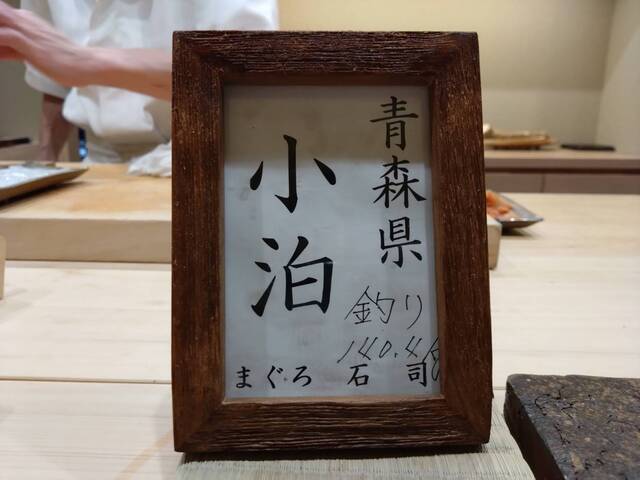 青森県
小泊
釣り
140.4
まぐろ 石司